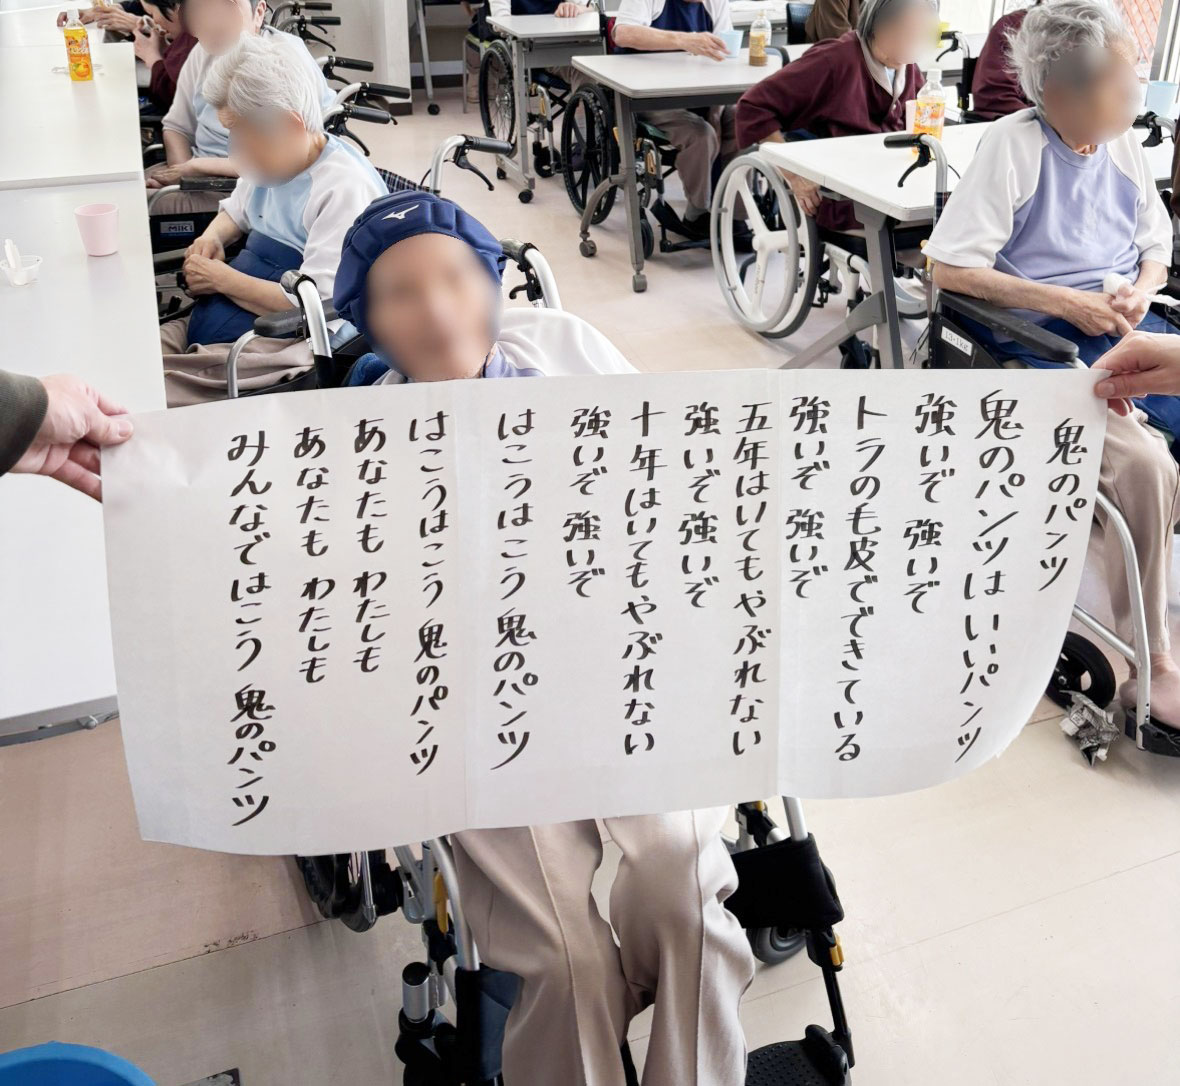 鬼のパンツ
鬼のパンツはいいパンツ
強いぞ 強いぞ
トラの毛皮でできている
強いぞ 強いぞ
五年はいてもやぶれない
強いぞ 強いぞ
十年はいてもやぶれない
強いぞ 強いぞ
はこうはこう 鬼のパンツ
はこうはこう 鬼のパンツ
あなたも わたしも
あなたも わたしも
みんなではこう 鬼のパンツ
MiKi